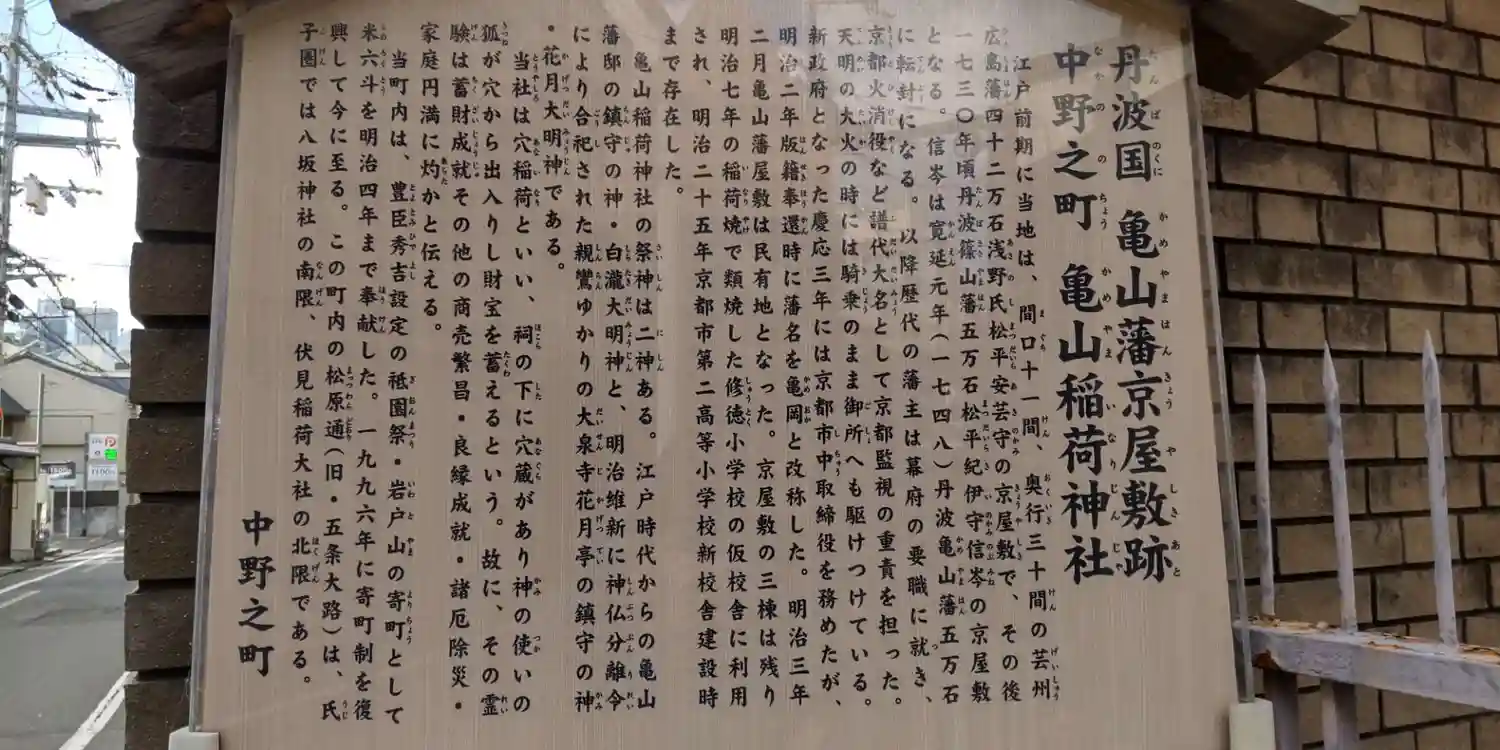 丹波国 亀山藩京屋敷跡
中野之町 亀山稲荷神社
江戸前期に当地は、間口十一間、奥行三十間の芸州
広島藩四十二万石浅野氏松平安芸守の京屋敷で、その後
一七三〇年頃丹波篠山藩五万石松平紀伊守信岑の京屋敷
となる。信岑は寛延元年(一七四八)丹波亀山藩五万石
に転封になる。以降歴代の藩主は幕府の要職に就き、
京都火消役など譜代大名として京都監視の重責を担った。
天明の大火の時には騎乗のまま御所へも駆けつけている。
新政府となった慶応三年には京都市中取締役を務めたが、
明治二年版籍奉還時に藩名を亀岡と改称した。明治三年
二月亀山藩屋敷は民有地となった。京屋敷の三棟は残り
明治七年の稲荷焼で類焼した修徳小学校の仮校舎に利用
され、明治二十五年京都市第二高等小学校新校舎建設時
まで存在した。
亀山稲荷神社の祭神は二神ある。江戸時代からの亀山
藩邸の鎮守の神・白瀧大明神と、明治維新に神仏分離令
により合祀された親鸞ゆかりの大泉寺花月亭の鎮守の神
・花月大明神である。
当社は穴稲荷といい、祠の下に穴蔵があり神の使いの
狐が穴から出入りし財宝を蓄えるという。故に、その霊
験は蓄財成就その他の商売繁昌・良縁成就・諸厄除災・
家庭円満に灼かと伝える。
当町内は、豊臣秀吉設定の祗園祭・岩戸山の寄町として
米六斗を明治四年まで奉献した。一九九六年に寄町制を復
興して今に至る。この町内の松原通(旧・五条大路)は、氏
子圏では八坂神社の南限、伏見稲荷大社の北限である。
中野之町
P